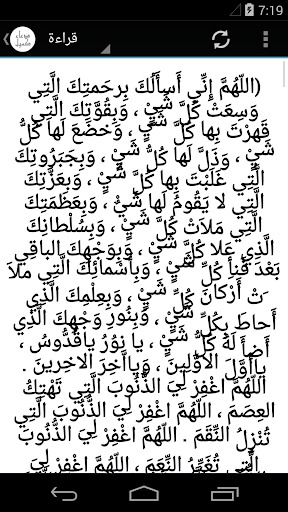 7:19
قراءة
دعاء كميل
(اللهُمَّ إِنِّي أَسأَلُكَ بِرَحمَتِكَ الَّتِي
وَسِعَتْ كُلَّ شَيْءٍ ، وَبِقُوَّتِكَ الَّتِي
قَهَرْتَ بِها كُلَّ شَيْءٍ ، وَخضَعَ لَها كُلُّ
شَيْءٍ ، وَذَلَّ لَها كُلُّ شَيْءٍ ، وَبِجَبَرُوتِكَ
الَّتِي غَلَبْتَ بِها كُلَّ شَيْءٍ ، وَبِعِزَّتِكَ
الَّتِي لا يَقُومُ لَها شَيْءٌ ، وَبِعَظَمَتِكَ
الَّتِي مَلاَتْ كُلَّ شَيْءٍ ، وَبِسُلْطانِكَ
الَّذِي عَلا كُلَّ شَيْءٍ ، وَبِوَجْهِكَ الباقِي
بَعْدَ فَنأِ كُلِّ شَيْءٍ ، وَبِأَسْمائِكَ الَّتِي ملاَ
تْ أَرْكانَ كُلِّ شَيْءٍ ، وَبِعِلْمِكَ الَّذِي
أَحاطَ بِكُلِّ شَيْءٍ ، وَبِنُورِ وَجْهِكَ الَّذِي
أَضأَ لَهُ كُلُّ شَيْءٍ ، يا نوْرُ ياقُدُّوسُ ،
ياأَوَّلَ الأوَّلِينَ ، وَياآخِرَ الآخِرِينَ .
اللهُمَّ اغْفِرْ لِيَ الذُّنُوبَ الَّتِي تَهْتِكُ
العِصَمَ ، اللهُمَّ اغْفِرْ لِيَ الذُّنُوبَ الَّتِي
تُنْزِلُ النِّقَمَ . اللهُمَّ اغْفِرْ لِيَ الذُّنُوبَ
الَّتِي تُغَيِّرُ النِّعَمَ ، اللهُمَّ اغْفِرْ لِيَ